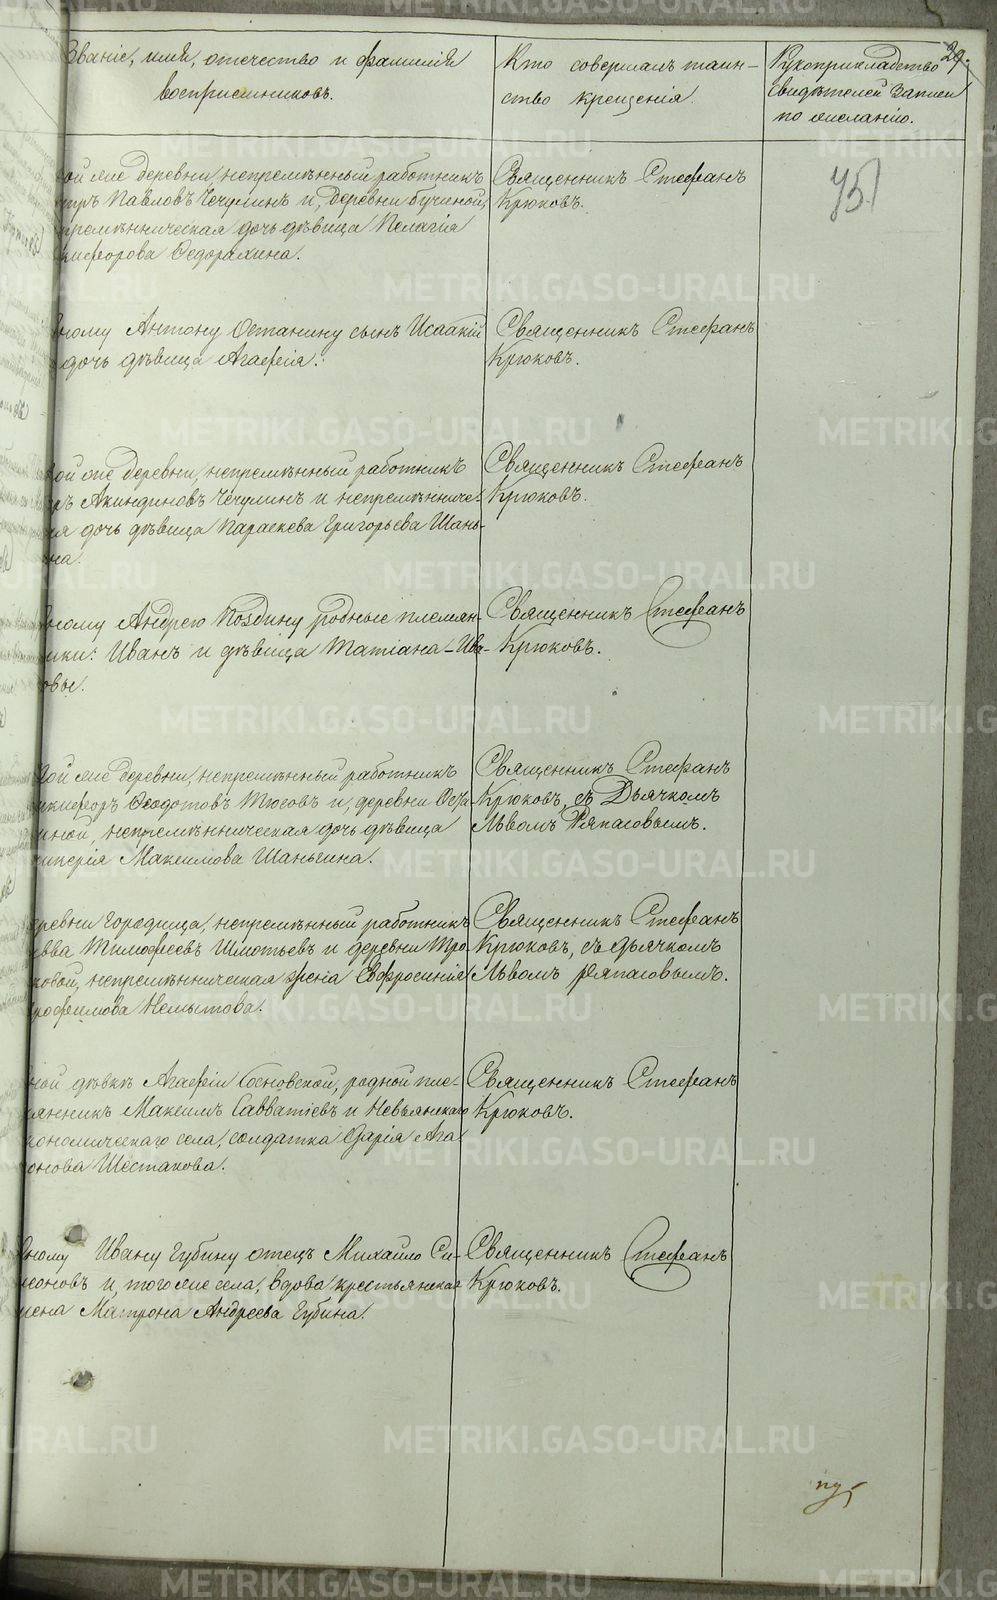 29.
Званіе, имя, отчество и фамилія
воспріемниковъ.
Кто совершалъ таин-
ство крещенія.
Рукоприкладство
свидѣтелей записи
по желанію.
75
ой же деревни, непремѣнный работникъ
тръ Павловъ Чечулинъ и, деревни Бучиной,
премѣнническая дочь дѣвица Пелагія
кифорова Ѳедорахина.
Священникъ Стефанъ
Крюковъ.
ному Антону Останину сынъ Исаакій
дочь дѣвица Агафія.
Священникъ Стефанъ
Крюковъ.
ой же деревни, непремѣнный работникъ
ръ Акиндиновъ Чечулинъ и непремѣнниче-
ая дочь дѣвица Параскева Григорьева Шань-
на.
Священникъ Стефанъ
Крюковъ.
ному Андрею Поздину родные племян-
ики: Иванъ и дѣвица Татіана Ива-
овы.
Священникъ Стефанъ
Крюковъ.
ой же деревни, непремѣнный работникъ
икифоръ Ѳеодотовъ Тюсовъ и, деревни Осѣ-
иной, непремѣнническая дочь дѣвица
Максимова Шаньгина.
Священникъ Стефанъ
Крюковъ, съ Дьячкомъ
Львомъ Ряпасовымъ.
еревни Городища, непремѣнный работникъ
авва Тимофеевъ Шмотьевъ и деревни Тро
ковой, непремѣнническая жена Евфросинія
рофимова Немытова.
Священникъ Стефанъ
Крюковъ, съ дьячкомъ
Львомъ Ряпасовымъ.
ной дѣвкѣ Агафіи Сосновской, родной пле-
мянникъ Максимъ Савватіевъ и Невьянскаго
кономическаго села, солдатка Дарія Ага
онова Шестакова.
Священникъ Стефанъ
Крюковъ.
ному Ивану Губину отецъ Михайло Си-
меоновъ и, того же села, вдова крестьянская
жена Матрона Андреева Губина.
Священникъ Стефанъ
Крюковъ.
METRIKI.GASO-URAL.RU